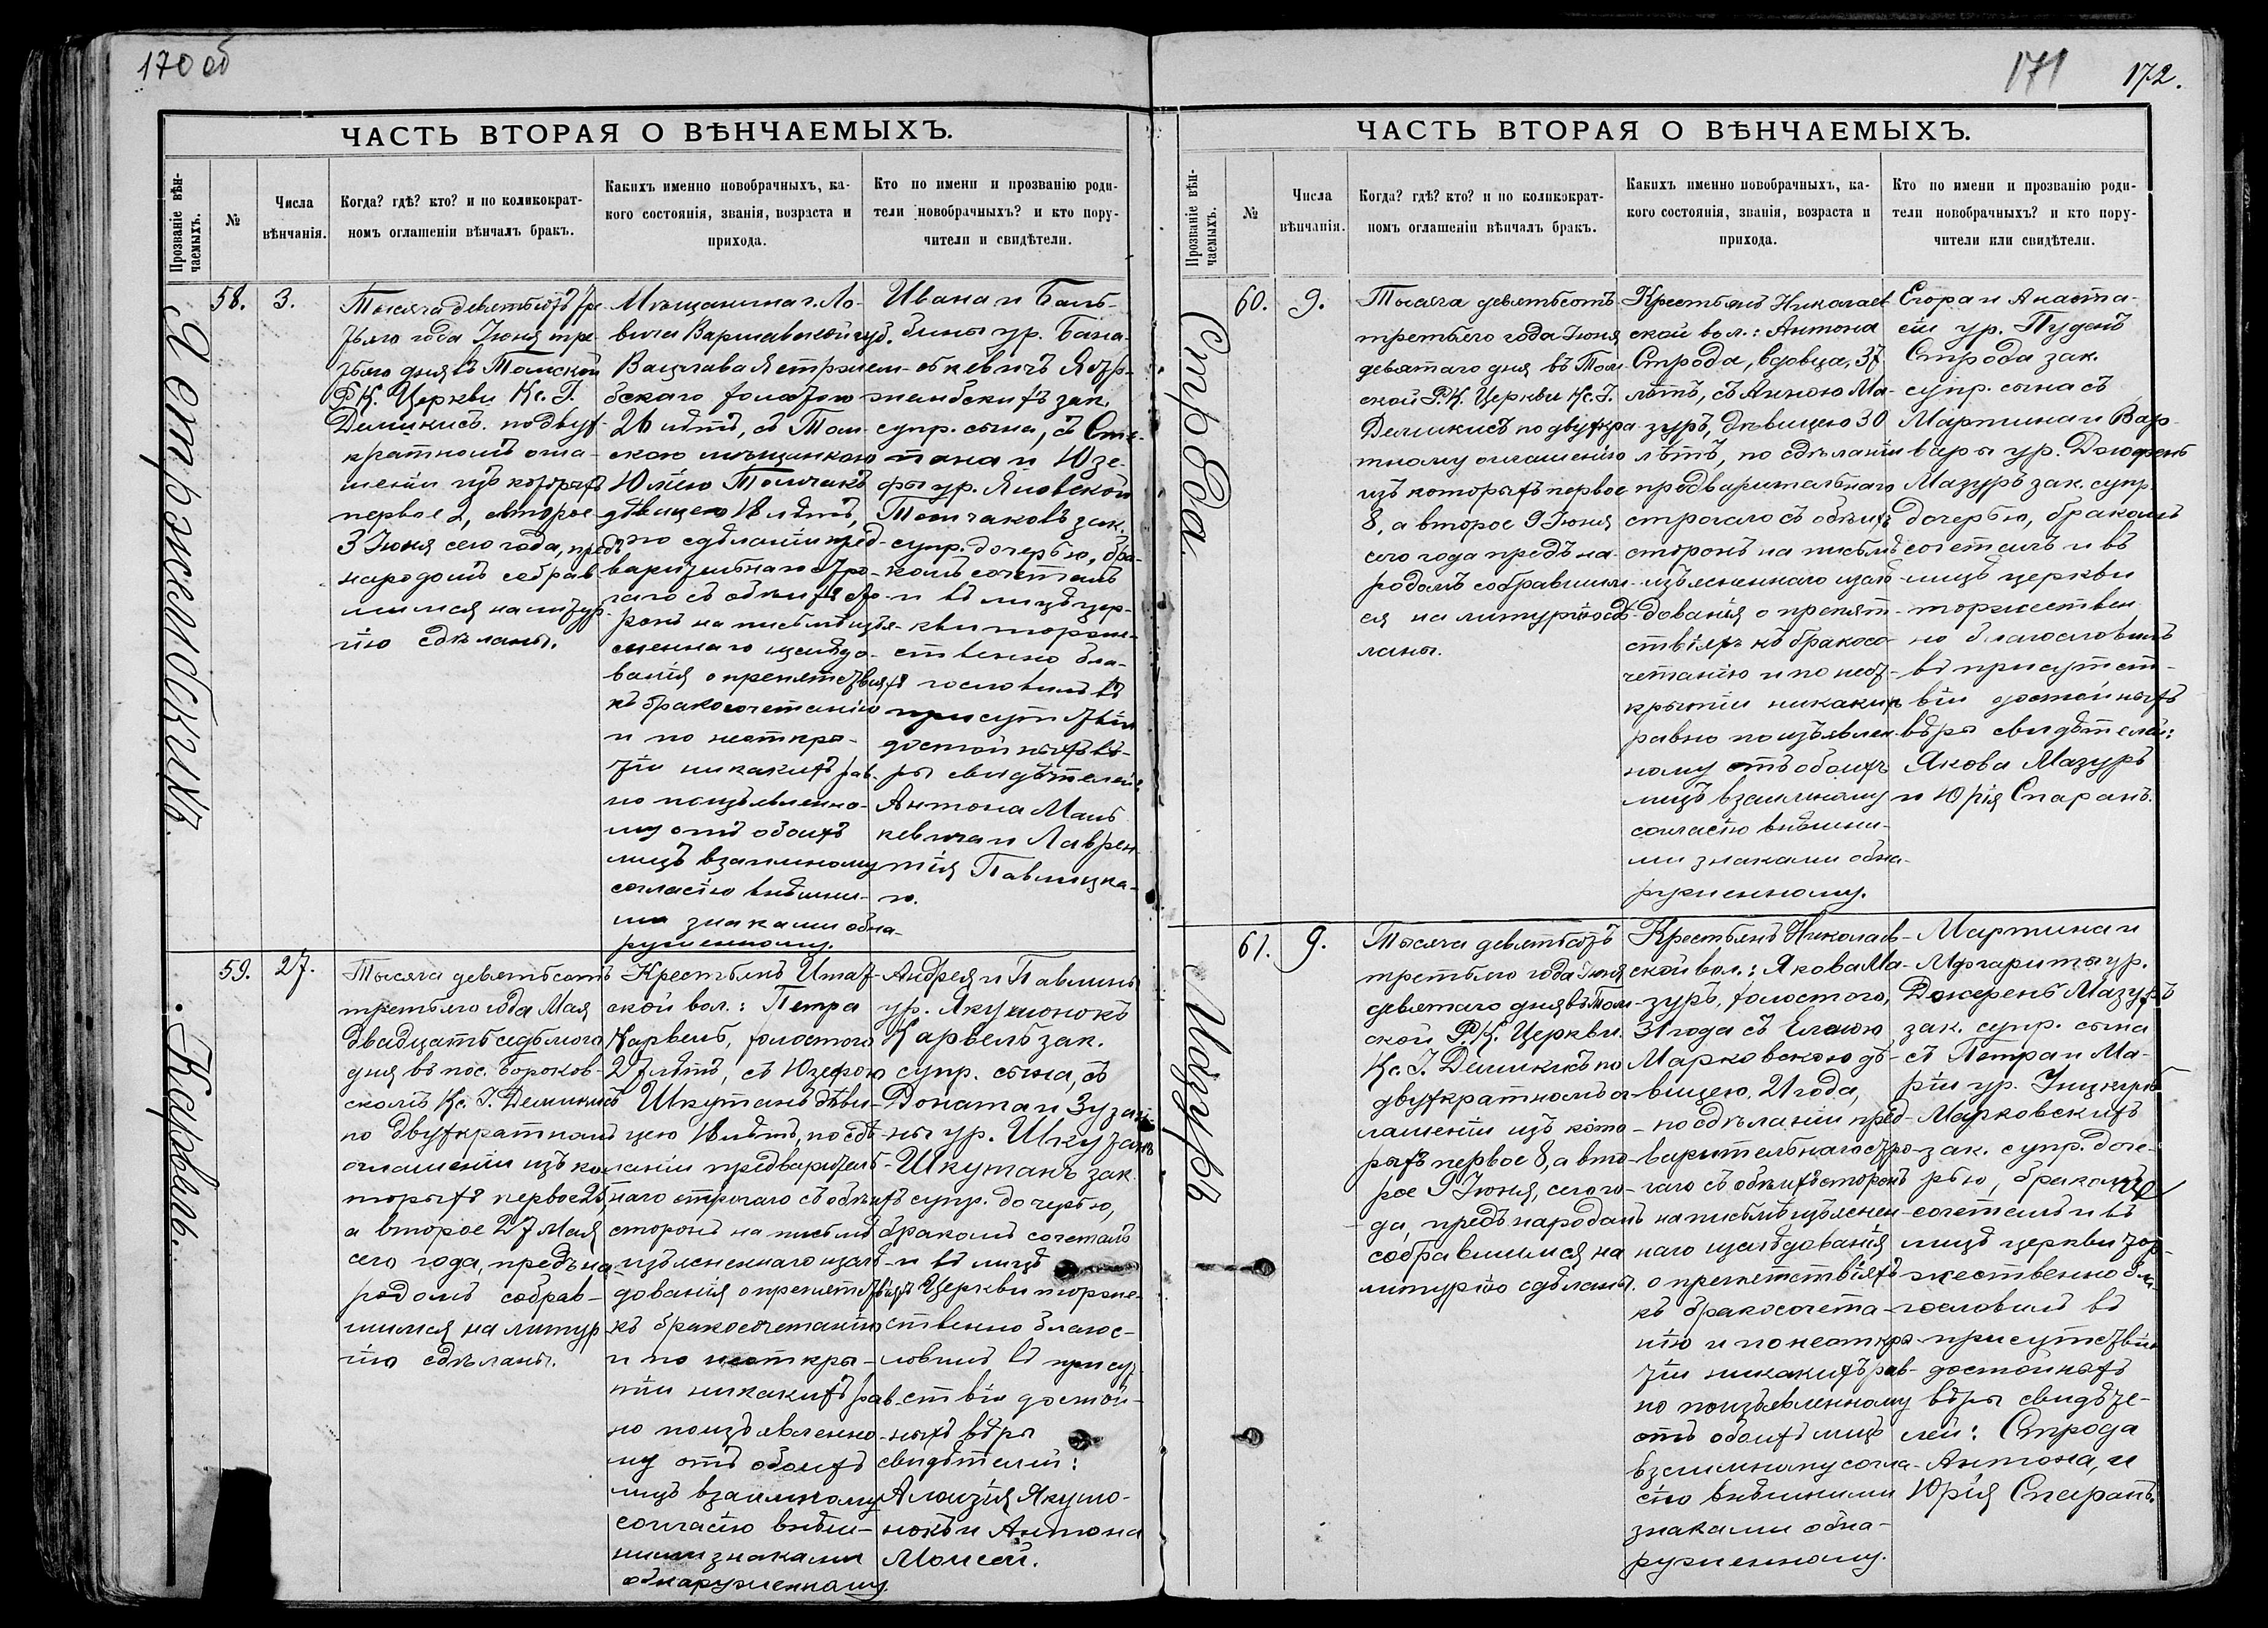 170 об
ЧАСТЬ ВТОРАЯ О ВѢНЧАЕМЫХЪ.
Прозваніе вѣн-
чаемыхъ.
№
Числа
вѣнчанія.
Когда? гдѣ? кто? и по коликократ-
номъ оглашеніи вѣнчалъ бракъ.
Какихъ именно новобрачныхъ, ка-
кого состоянія, званія, возраста и
прихода.
Кто по имени и прозванію роди-
тели новобрачныхъ? и кто пору-
чители и свидѣтели.
Ястржембскихъ.
58.
3.
Тысяча девятьсотъ тре
тьяго года Іюня тре
тьяго дня въ Томской
Р. К. Церкви Кс. І.
Демикисъ по двух-
кратномъ огла-
шеніи изъ которыхъ
первое 2, второе
3 Іюня сего года, предъ
народомъ собрав-
шимся на литур
гію сдѣланы.
Мѣщанина г. Ло-
вича Варшавской губ.
Вацлава Ястржем-
бскаго холостого
26 лѣтъ, съ Том-
скою мѣщанкою
Юліею Томчакъ
дѣвицею 18 лѣтъ,
по сдѣланіи пред-
варительнаго стро-
гаго съ обѣихъ сто-
ронъ на письмѣ изъя-
сненнаго изслѣдо-
ванія о препятствіяхъ
къ бракосочетанію
и по неоткры-
тіи никакихъ рав-
но по изъявленно-
му отъ обоихъ
лицъ взаимному
согласію внѣшни-
ми знаками обна-
руженному.
Ивана и Баль-
бины ур. Бана-
скевичъ Ястр-
жембскихъ зак.
супр. сына, съ Сте-
пана и Юзе-
фы ур. Яновской
Томчаковъ зак.
супр. дочерью, бра-
комъ сочеталъ
и въ лицѣ цер-
кви торже-
ственно бла-
гословилъ въ
присутствіи
достойныхъ вѣ-
ры свидѣтелей:
Антона Маць
кевича и Лаврен
тія Павлицка-
го.
Карвель.
59.
27.
Тысяча девятьсотъ
третьяго года Мая
двадцать седьмого
дня въ пос. Бороков-
скомъ Кс. І. Демикисъ
по двухкратномъ
оглашеніи изъ ко-
торыхъ первое 25,
а второе 27 Мая
сего года, предъ на
родомъ собрав-
шимся на литур
гію сдѣланы.
Крестьянъ Ишат-
ской вол.: Петра
Карвель, холостого
27 лѣтъ, съ Юзефою
Шкутанъ дѣви-
цею 18 лѣтъ, по сдѣ-
ланіи предваритель-
наго строгаго съ обѣихъ
сторонъ на письмѣ
изъясненнаго изслѣ-
дованія о препятствіяхъ
къ бракосочетанію
и по неоткры-
тіи никакихъ рав-
но по изъявленно-
му отъ обоихъ
лицъ взаимному
согласію внѣш-
ними знаками
обнаруженному.
Андрея и Павлины
ур. Якушонокъ
Карвель зак.
супр. сына, съ
Доната и Зузан-
ны ур. Шкутанъ
Шкутанъ зак.
супр. дочерью,
бракомъ сочеталъ
и въ лицѣ
Церкви торже-
ственно благос-
ловилъ въ присут
ствіи достой-
ныхъ вѣры
свидѣтелей:
Алоизія Якушо-
нокъ и Антона
Моисей.
171
172.
ЧАСТЬ ВТОРАЯ О ВѢНЧАЕМЫХЪ.
Прозваніе вѣн-
чаемыхъ.
№
Числа
вѣнчанія.
Когда? гдѣ? кто? и по коликократ-
номъ оглашеніи вѣнчалъ бракъ.
Какихъ именно новобрачныхъ, ка-
кого состоянія, званія, возраста и
прихода.
Кто по имени и прозванію роди-
тели новобрачныхъ? и кто пору-
чители или свидѣтели.
Строда.
60.
9.
Тысяча девятьсотъ
третьего года Іюня
девятаго дня въ Том-
ской Р. К. Церкви Кс. І.
Демикисъ по двухкра-
тному оглашенію
изъ которыхъ первое
8, а второе 9 Іюня
сего года предъ на-
родомъ собравшим-
ся на литургію сдѣ-
ланы.
Крестьянъ Николаев
ской вол.: Антона
Строда, вдовца, 37
лѣтъ, съ Анною Ма-
зуръ, дѣвицею 30
лѣтъ, по сдѣланіи
предварительнаго
строгаго съ обѣихъ
сторонъ на письмѣ
изъясненнаго изслѣ-
дованія о препят-
ствіяхъ къ бракосо-
четанію и по неот-
крытіи никакихъ
равно по изъявлен-
ному отъ обоихъ
лицъ взаимному
согласію внѣшни-
ми знаками обна-
руженному.
Егора и Анаста-
сіи ур. Пуденъ
Строда зак.
супр. сына съ
Мартина и Вар-
вары ур. Доюфень
Мазуръ зак. супр.
дочерью, бракомъ
сочеталъ и въ
лицѣ церкви
торжествен
но благословилъ
въ присутст-
віи достойныхъ
вѣры свидѣтелей:
Якова Мазуръ
и Юрія Спаранъ.
Мазуръ
61.
9.
Тысяча девятьсотъ
третьяго года Іюня
девятаго дня въ Том-
ской Р. К. Церкви.
Кс. І. Демикисъ по
двухкратномъ ог-
лашеніи изъ кото-
рыхъ первое 8, а вто-
рое 9 Іюня, сего го-
да, предъ народомъ
собравшимся на
литургію сдѣланы.
Крестьянъ Николаев-
ской вол.: Якова Ма-
зуръ, холостого,
31 года съ Еленою
Марковскою дѣ-
вицею, 21 года,
по сдѣланіи пред-
варительнаго стро-
гаго съ обѣихъ сторонъ
на письмѣ изъяснен-
наго изслѣдованія
о препятствіяхъ
къ бракосочета-
нію и по неоткры-
тіи никакихъ рав-
но по изъявленному
отъ обоихъ лицъ
взаимному согла-
сію внѣшними
знаками обна-
руженному.
Мартина и
Маргариты ур.
Джерень Мазуръ
зак. супр. сына
съ Петра и Ма-
ріи ур.
Марковскихъ
зак. супр. доче-
рью, бракомъ
сочеталъ и въ
лицѣ церкви тор-
жественно бла-
гословилъ въ
присутствіи
достойныхъ
вѣры свидѣте-
лей: Строда
Антона, и
Юрія Спаранъ.